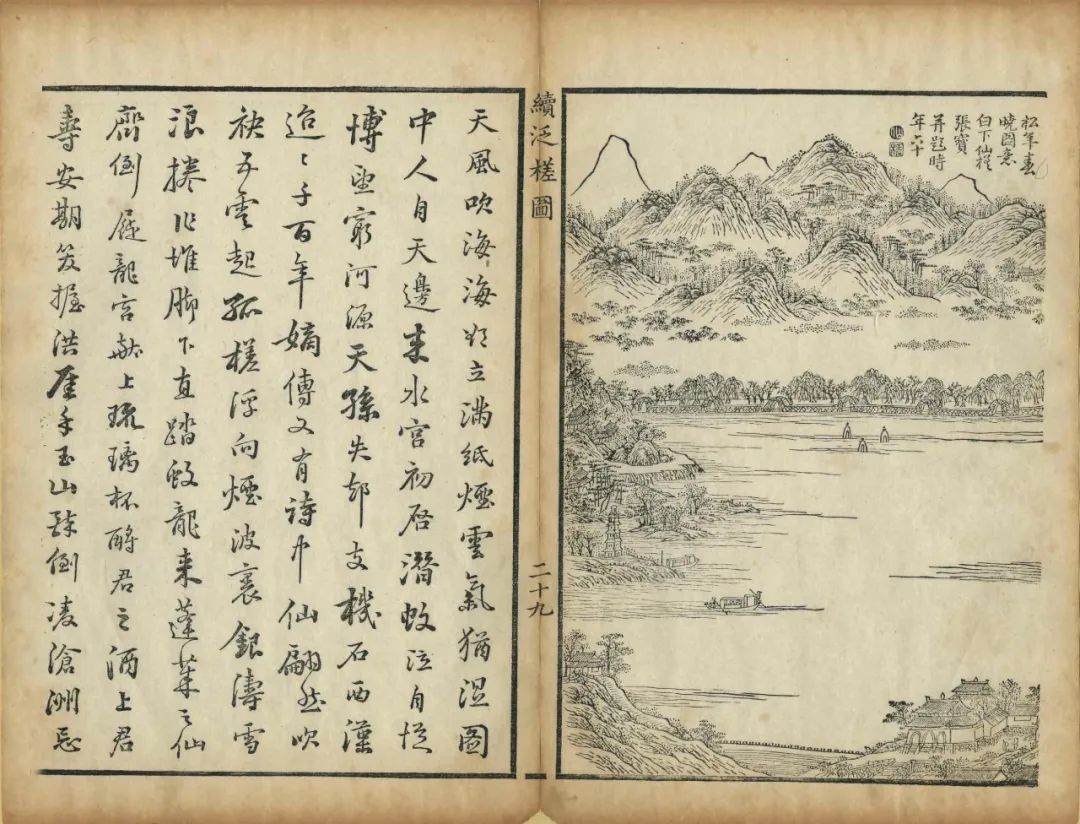 松年春
曉圖意
白下仙槎
張寶
并題時
年六十
續泛槎圖
二十九
天風吹海海欲立滿紙煙雲氣猶濕圖
中人自天邊來水宮初啓潛蛟泣自從
博望窮河源天孫失却支機石西漢
迢〻千百年嫡傳又有詩中仙翩然吹
袂五雲起孤槎浮向煙波裏銀濤雪
浪捲作堆脚下直踏蛟龍来蓬萊之仙
齊倒屣龍宮獻上琉璃杯酧君之酒上君
壽安期笑握洪厓手玉山倒凌滄洲忘